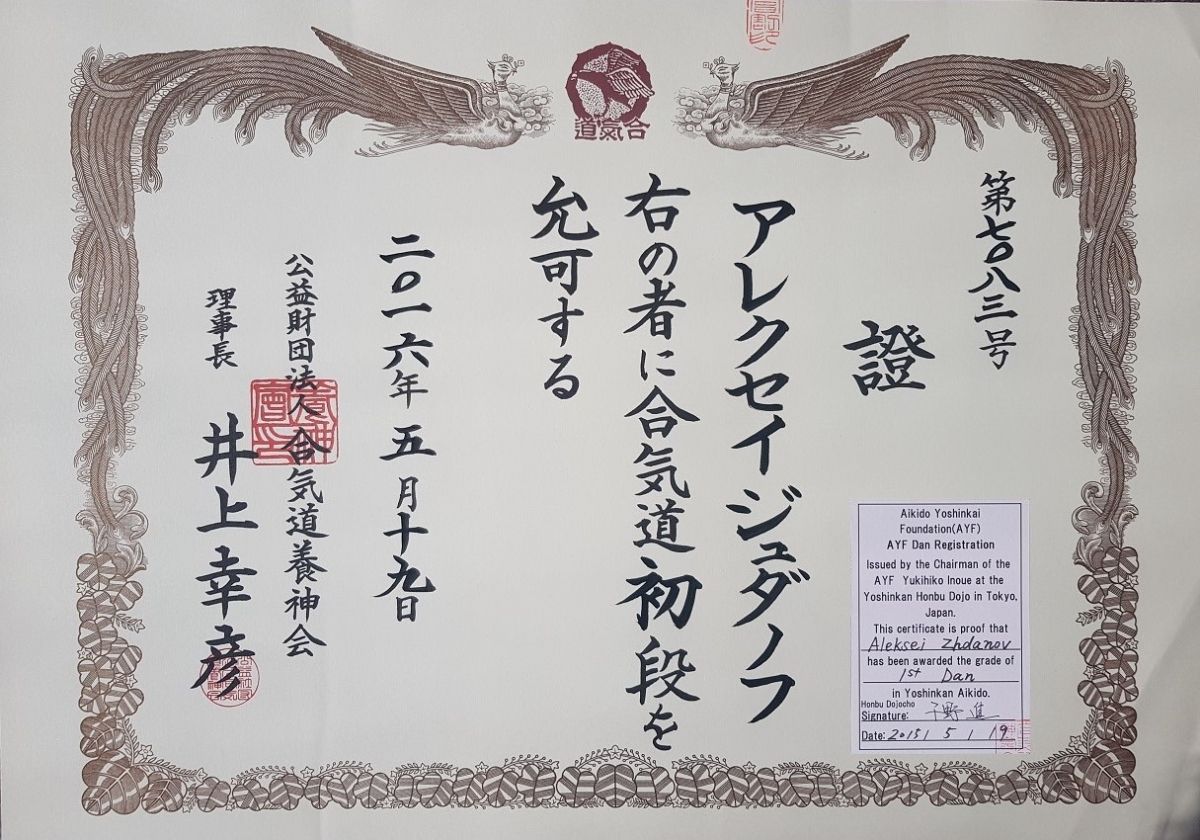 合氣道
第七〇八三号
證
アレクセイジュダノフ
右の者に合気道初段を
允可する
二〇一六年五月十九日
公益財団法人合気道養神会
理事長 井上幸彦
Aikido Yoshinkai
Foundation(AYF)
AYF Dan Registration
Issued by the Chairman of the
AYF Yukihiko Inoue at the
Yoshinkan Honbu Dojo in Tokyo,
Japan.
This certificate is proof that
Aleksei Zhdanov
has been awarded the grade of
1st Dan
in Yoshinkan Aikido.
Honbu Dojocho
Signature: 千野進
Date: 2015/ 5 / 19